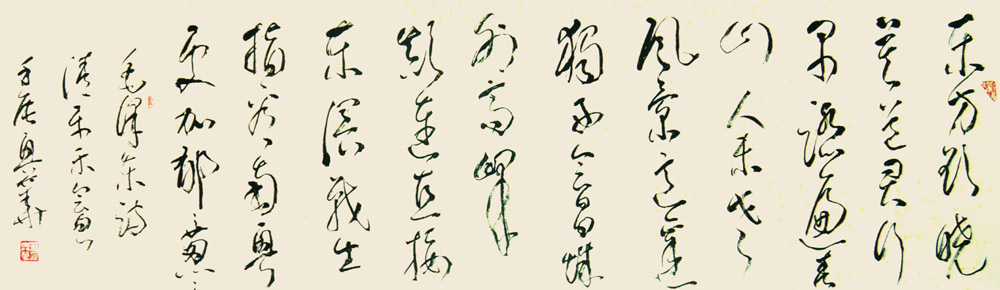 东方欲晓
莫道君行
早踏遍青
山人未老
风景这边
独好会昌城
外高峰
颠连直接
东溟战士
指看南粤
更加郁郁葱葱
毛泽东诗
清平乐会昌
壬辰